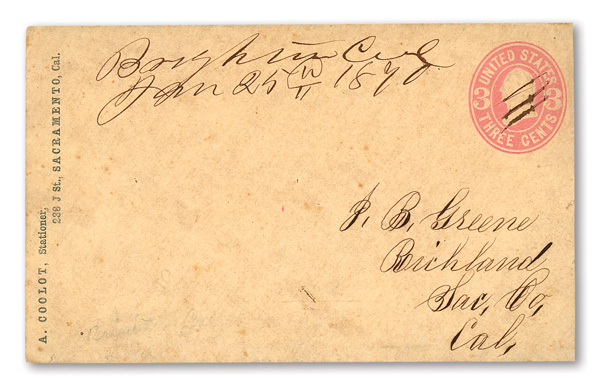 A. COOLOT, Stationer,
238 J St., SACRAMENTO, Cal.
Brighton Cal
Jan 25th 1870
UNITED STATES
3 3
THREE CENTS
J. B. Greene
Richland
Sac, Co,
Cal,